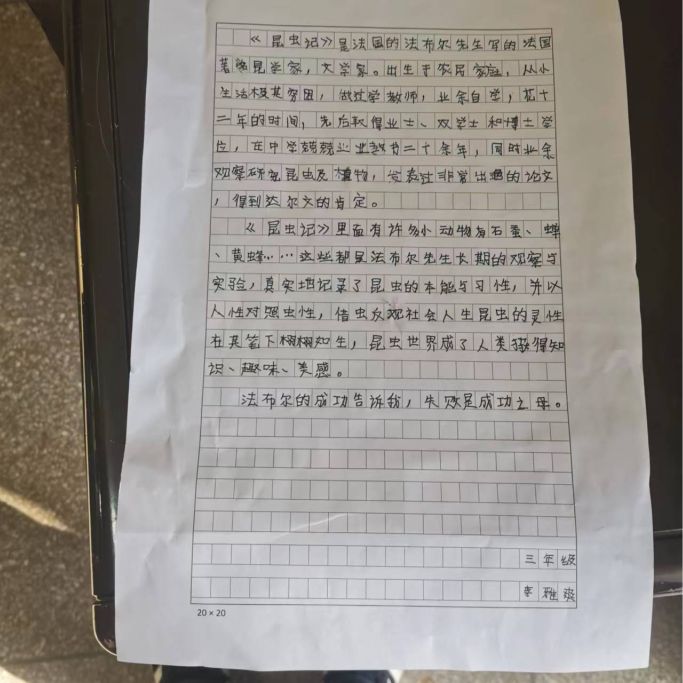 《昆虫记》是法国的法布尔先生写的法国
著名昆学家，文学家。出生于农民家庭，从小
生活极其穷困，做过学教师，业余自学，花十
二年的时间，先后取得业士、双学士和博士学
位，在中学兢兢业业教书二十余年，同时业余
观察研究昆虫及植物，发表过非常出色的论文
，得到达尔文的肯定。
《昆虫记》里面有许多小动物有石蚕、蝉
、黄蜂……这些都是法布尔先生长期的观察与
实验，真实地记录了昆虫的本能与习性，并以
人性对照虫性，借虫反观社会人生昆虫的灵性
在其笔下栩栩如生，昆虫世界成了人类获得知
识、趣味、美感。
法布尔的成功告诉我，失败是成功之母。
三年级
李雅
20×20